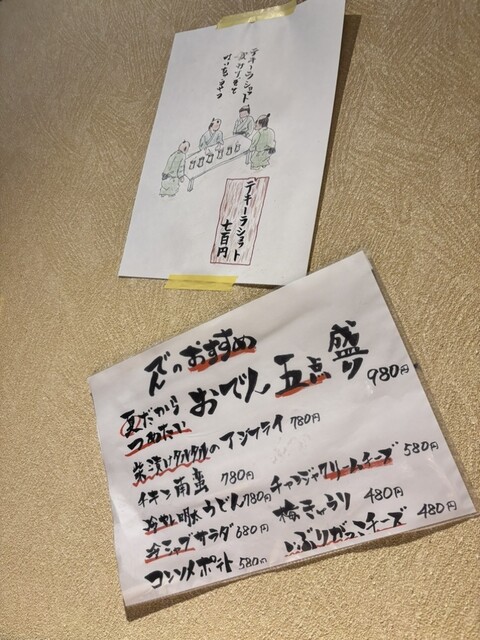 テキーラショット
テキーラショット
七百円
でんのおすすめ
夏だから
つめたい
おでん 五点盛り 980円
柴漬けタルタルのアジフライ 780円
チキン南蛮 780円
冷やし明太うどん 780円
冷シャブサラダ 680円
コンソメポテト 580円
チャンジャクリームチーズ 580円
梅きゅうり 480円
いぶりがっこチーズ 480円